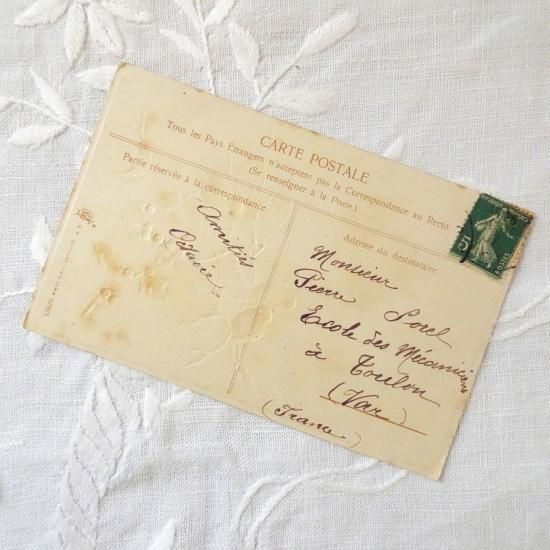 CARTE POSTALE
Tous les Pays Étrangers n'acceptent pas la Correspondance au Recto
(Se renseigner à la Poste.)
Partie réservée à la correspondance.
Adresse du destinataire.
Amitiés
Octavie
Monsieur
Pierre Sorel
Ecole des Mécaniciens
à Toulon
(Var)
(France)
5